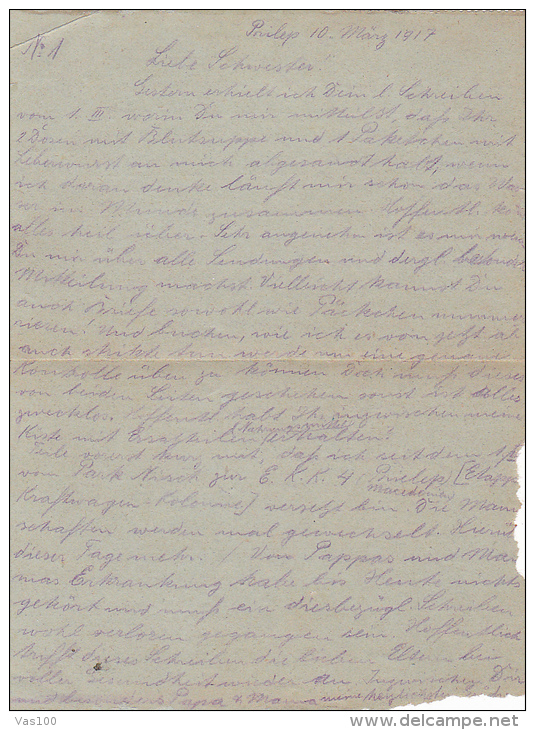 Prilep 10. März 1917
No 1
Liebe Schwester!
Gestern erhielt ich Dein l. Schreiben
vom 1. III. worin Du mir mitteilst, daß Ihr
2 Dosen mit Blutsuppe und 1 Paketchen mit
Leberwurst an mich abgesandt habt, wenn
ich daran denke läuft mir schon das Was-
ser im Munde zusammen. Hoffentl.
alles heil über. Sehr angenehm ist es mir wenn
Du mir über alle Sendungen und dergl.
Mitteilung machst. Vielleicht kannst Du
auch Briefe sowohl wie Päckchen numme-
rieren! Und buchen, wie ich es von jetzt ab
auch strikte tun werde um eine genaue
Kontrolle üben zu können. Doch muß dieses
von beiden Seiten geschehen sonst ist alles
zwecklos. Hoffentl. habt Ihr inzwischen meine
Kiste mit (Nahrungsmittel) erhalten!
Teile vorerst kurz mit, daß ich seit dem 1.
vom Park Nisch zur E. K. K. 4 Prilep (Etapp
Macedonien
Kraftwagen-Kolonne) versetzt bin. Die Mann
schaften werden mal gewechselt. Hierü
dieser Tage mehr. / Von Pappas und Ma
mas Erkrankung habe bis Heute nichts
gehört und muß ein diesbezügl. Schreiben
wohl verloren gegangen sein. Hoffentlich
trifft dieses Schreiben die lieben Eltern bei
voller Gesundheit wieder an. Inzwischen Dir
und besonders Papa & Mama meine herzlichsten
Vas100
delcampe.net